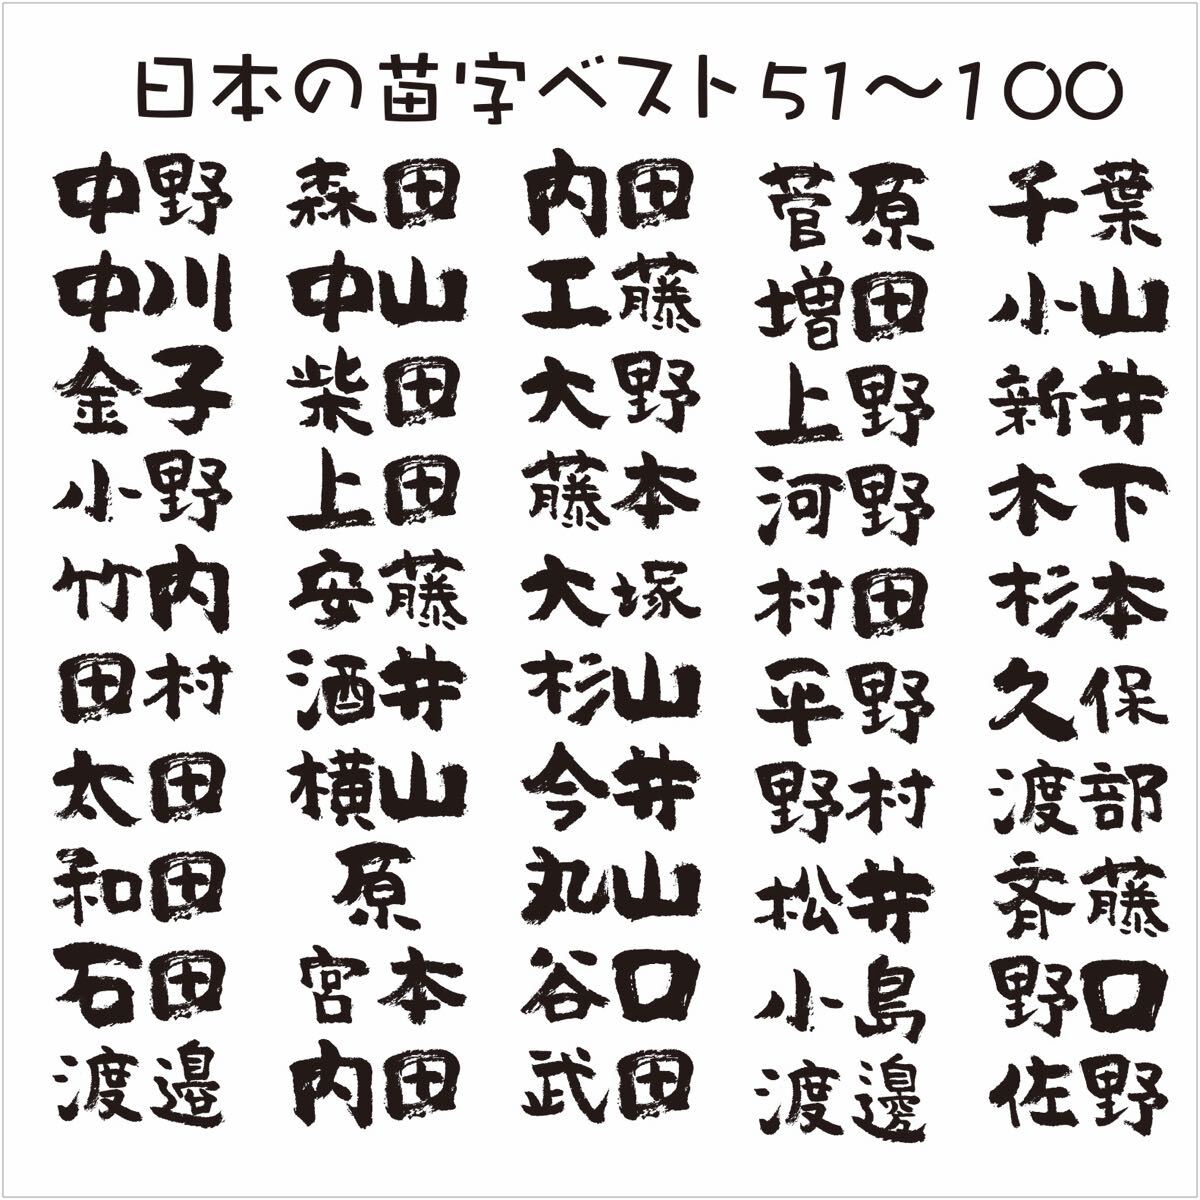 日本の苗字ベスト51～100
中野 森田 内田 菅原 千葉
中川 中山 工藤 増田 小山
金子 柴田 大野 上野 新井
小野 上田 藤本 河野 木下
竹内 安藤 大塚 村田 杉本
田村 酒井 杉山 平野 久保
太田 横山 今井 野村 渡部
和田 原 丸山 松井 斉藤
石田 宮本 谷口 小島 野口
渡邉 内田 武田 渡邊 佐野